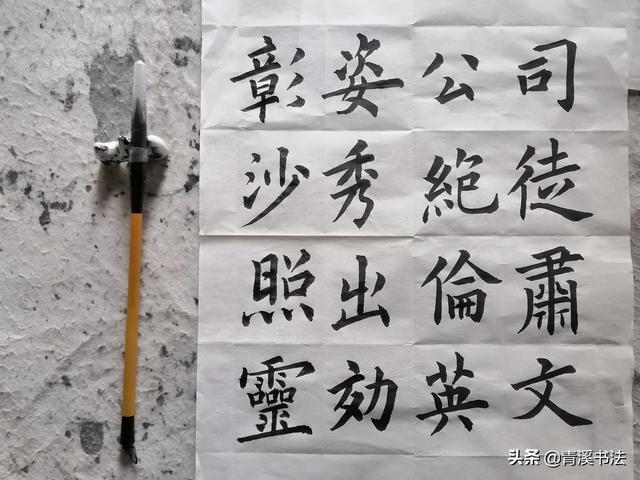 司徒肅文
公絶倫英
姿秀出効
彰沙照靈
头条 @青溪书法